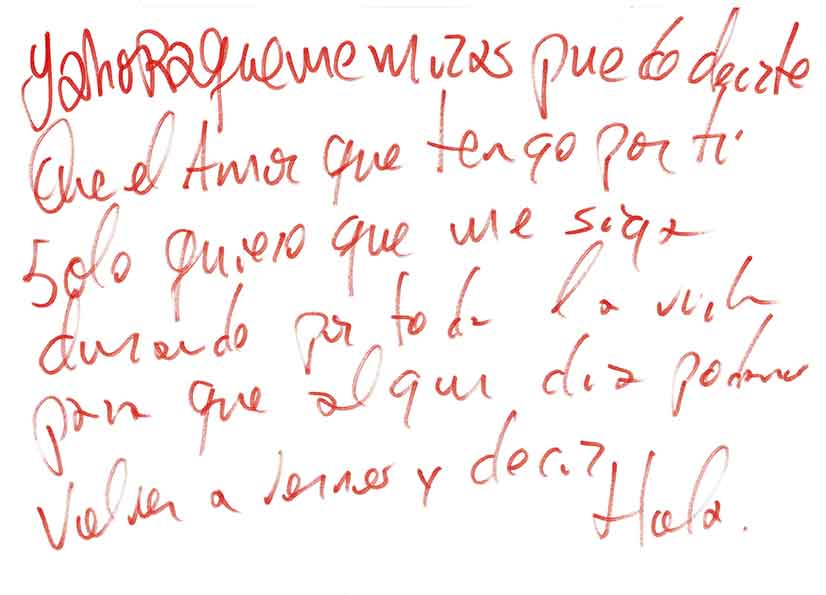 Y ahora que me miras puedo decirte
Que el Amor que tengo por ti
Solo quiero que me siga
durando por toda la vida
para que algun dia podamos
volver a vernos y decir
Hola.